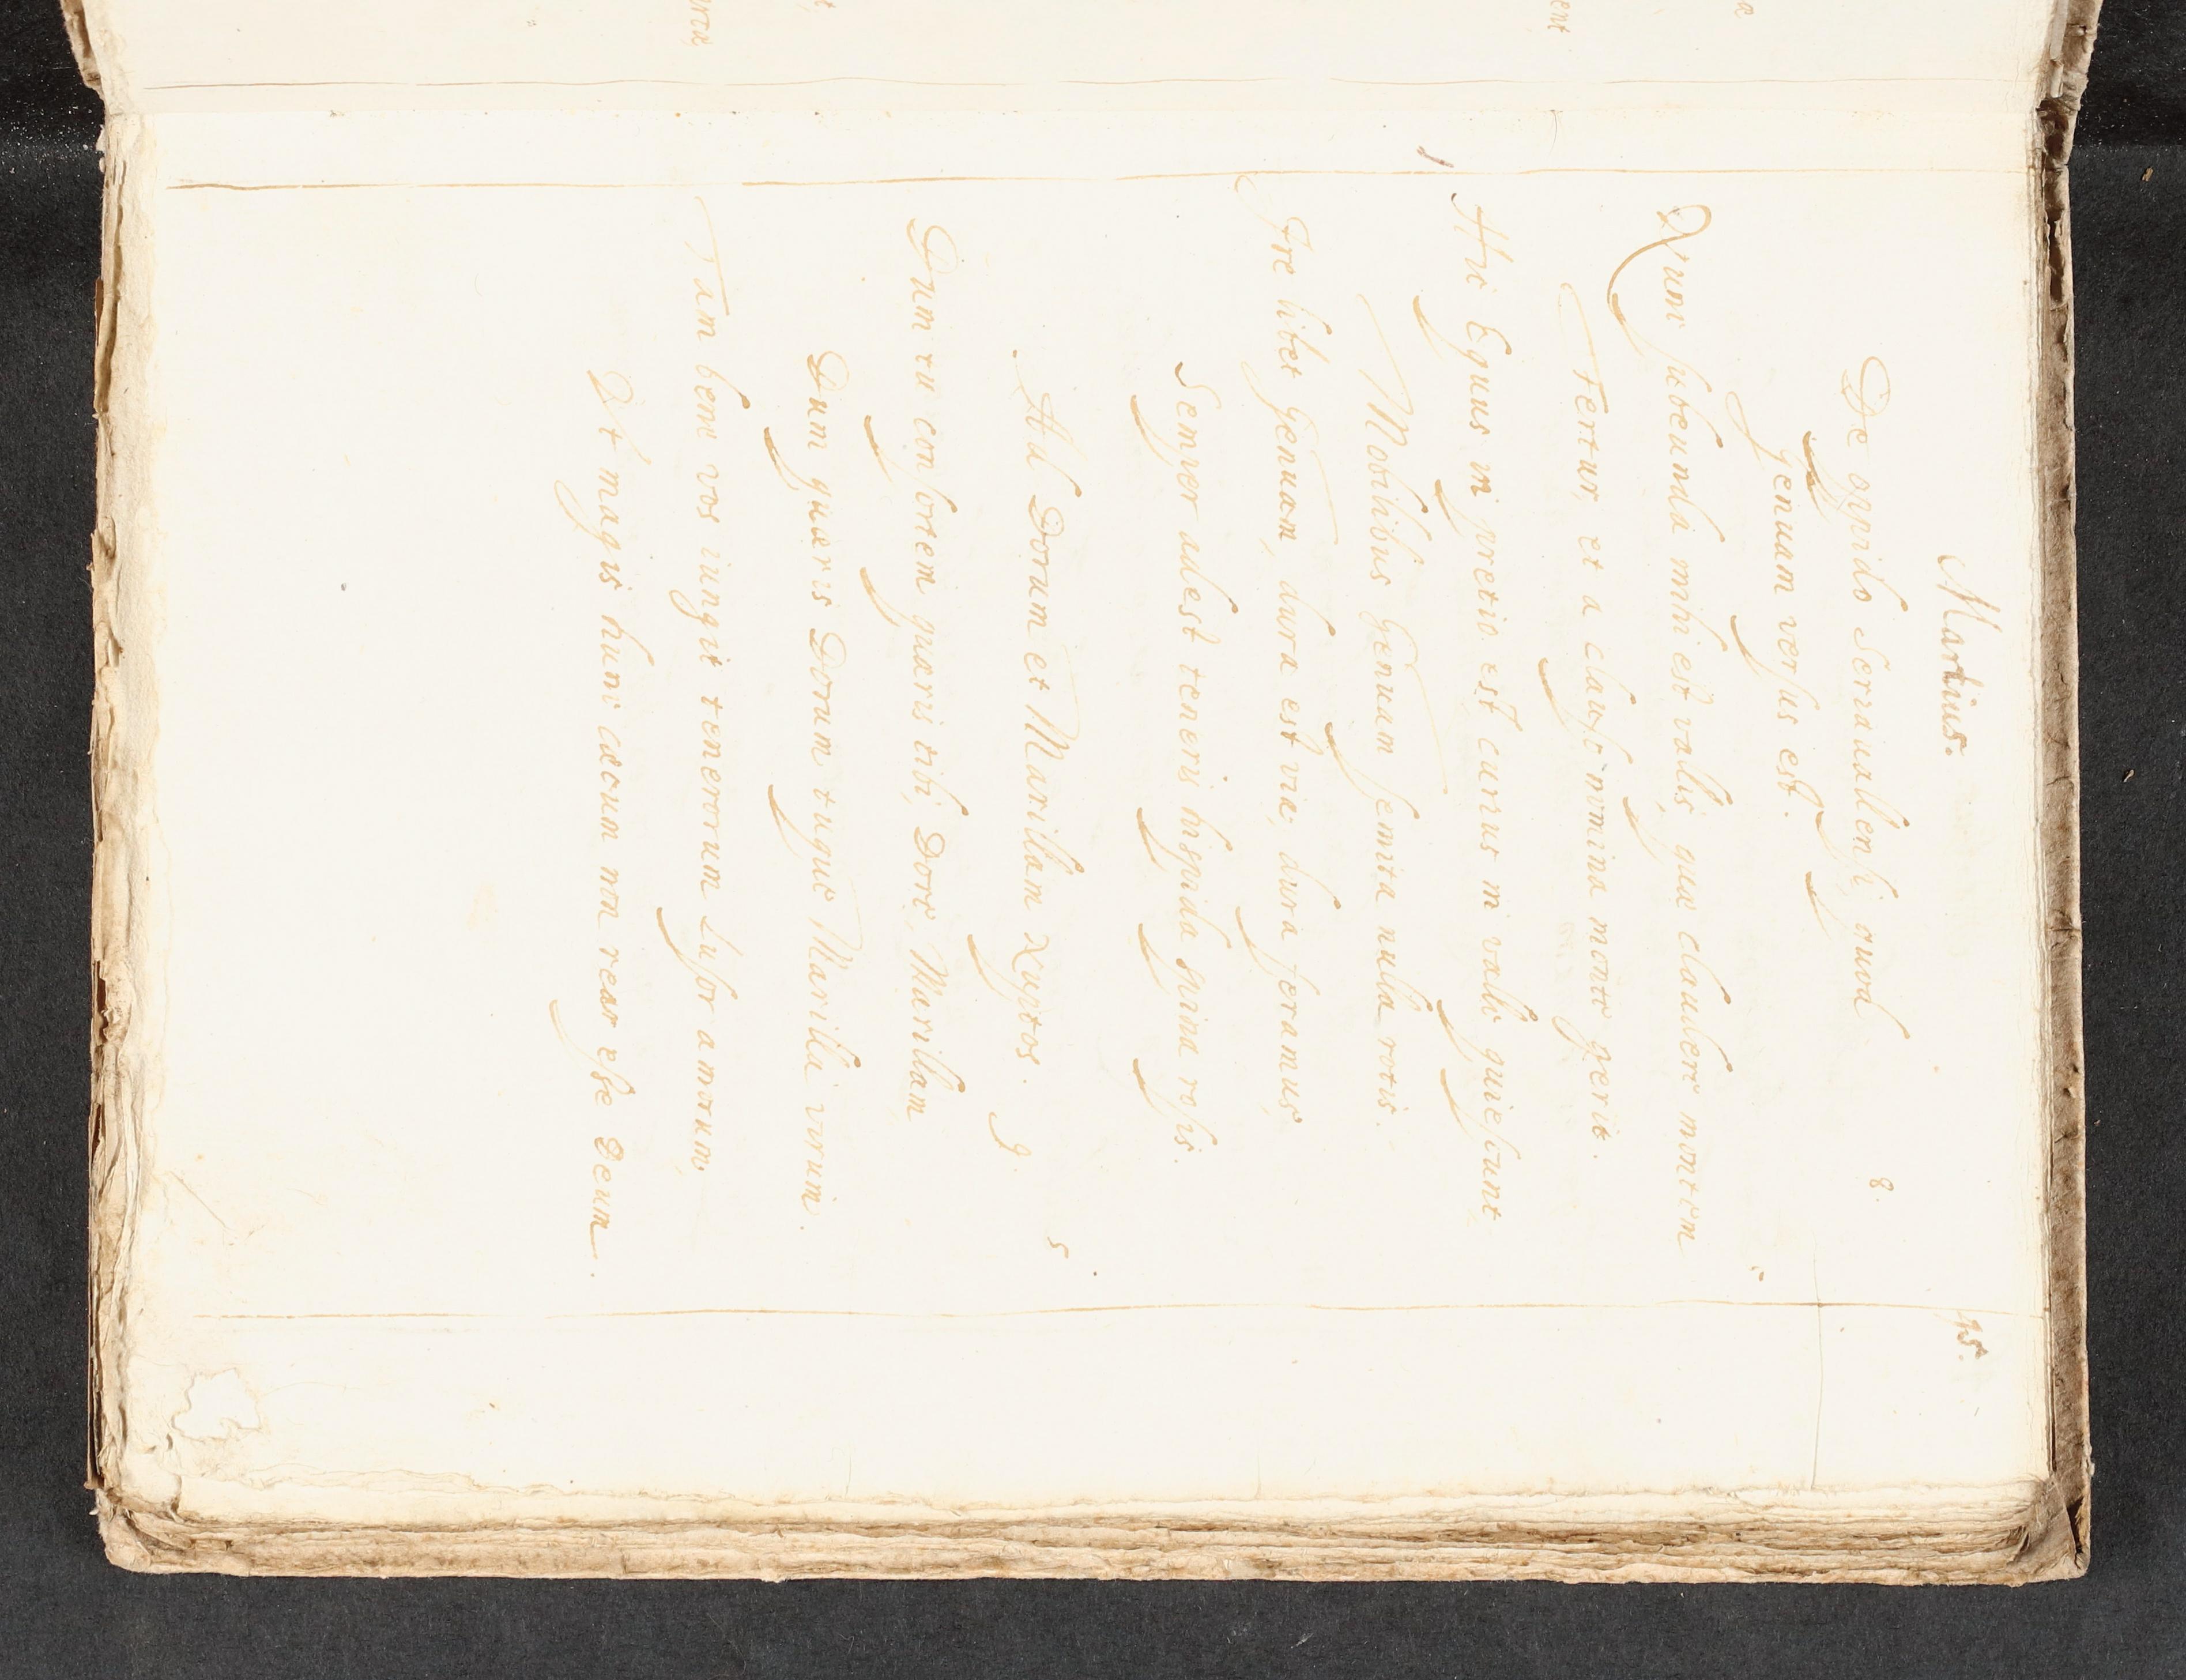 Martius. 15.
De oppido Serraualensi, quod 8.
genuam versus est.
Nunc subeunda mihi est vallis, quæ claudere montem
Fertur, et a clauso nomina monte gerit.
Hic Equus in pretio est, currus in valle quiescunt
Mobilibus Genuam semita nulla rotis.
Ire libet Genuam, dura est via, dura feramus,
Semper adest teneris hispida spina rosis.
5
Ad Dorum et Marillam Nuptos. 9.
Dum tu consortem quæris tibi, Dore, Marillam
Dum quæris Dorum tuque Marilla virum.
Tam bene vos iungit tenerorum Lusor amorum,
Vt magis hunc cæcum non rear esse Deum.
ent
t,